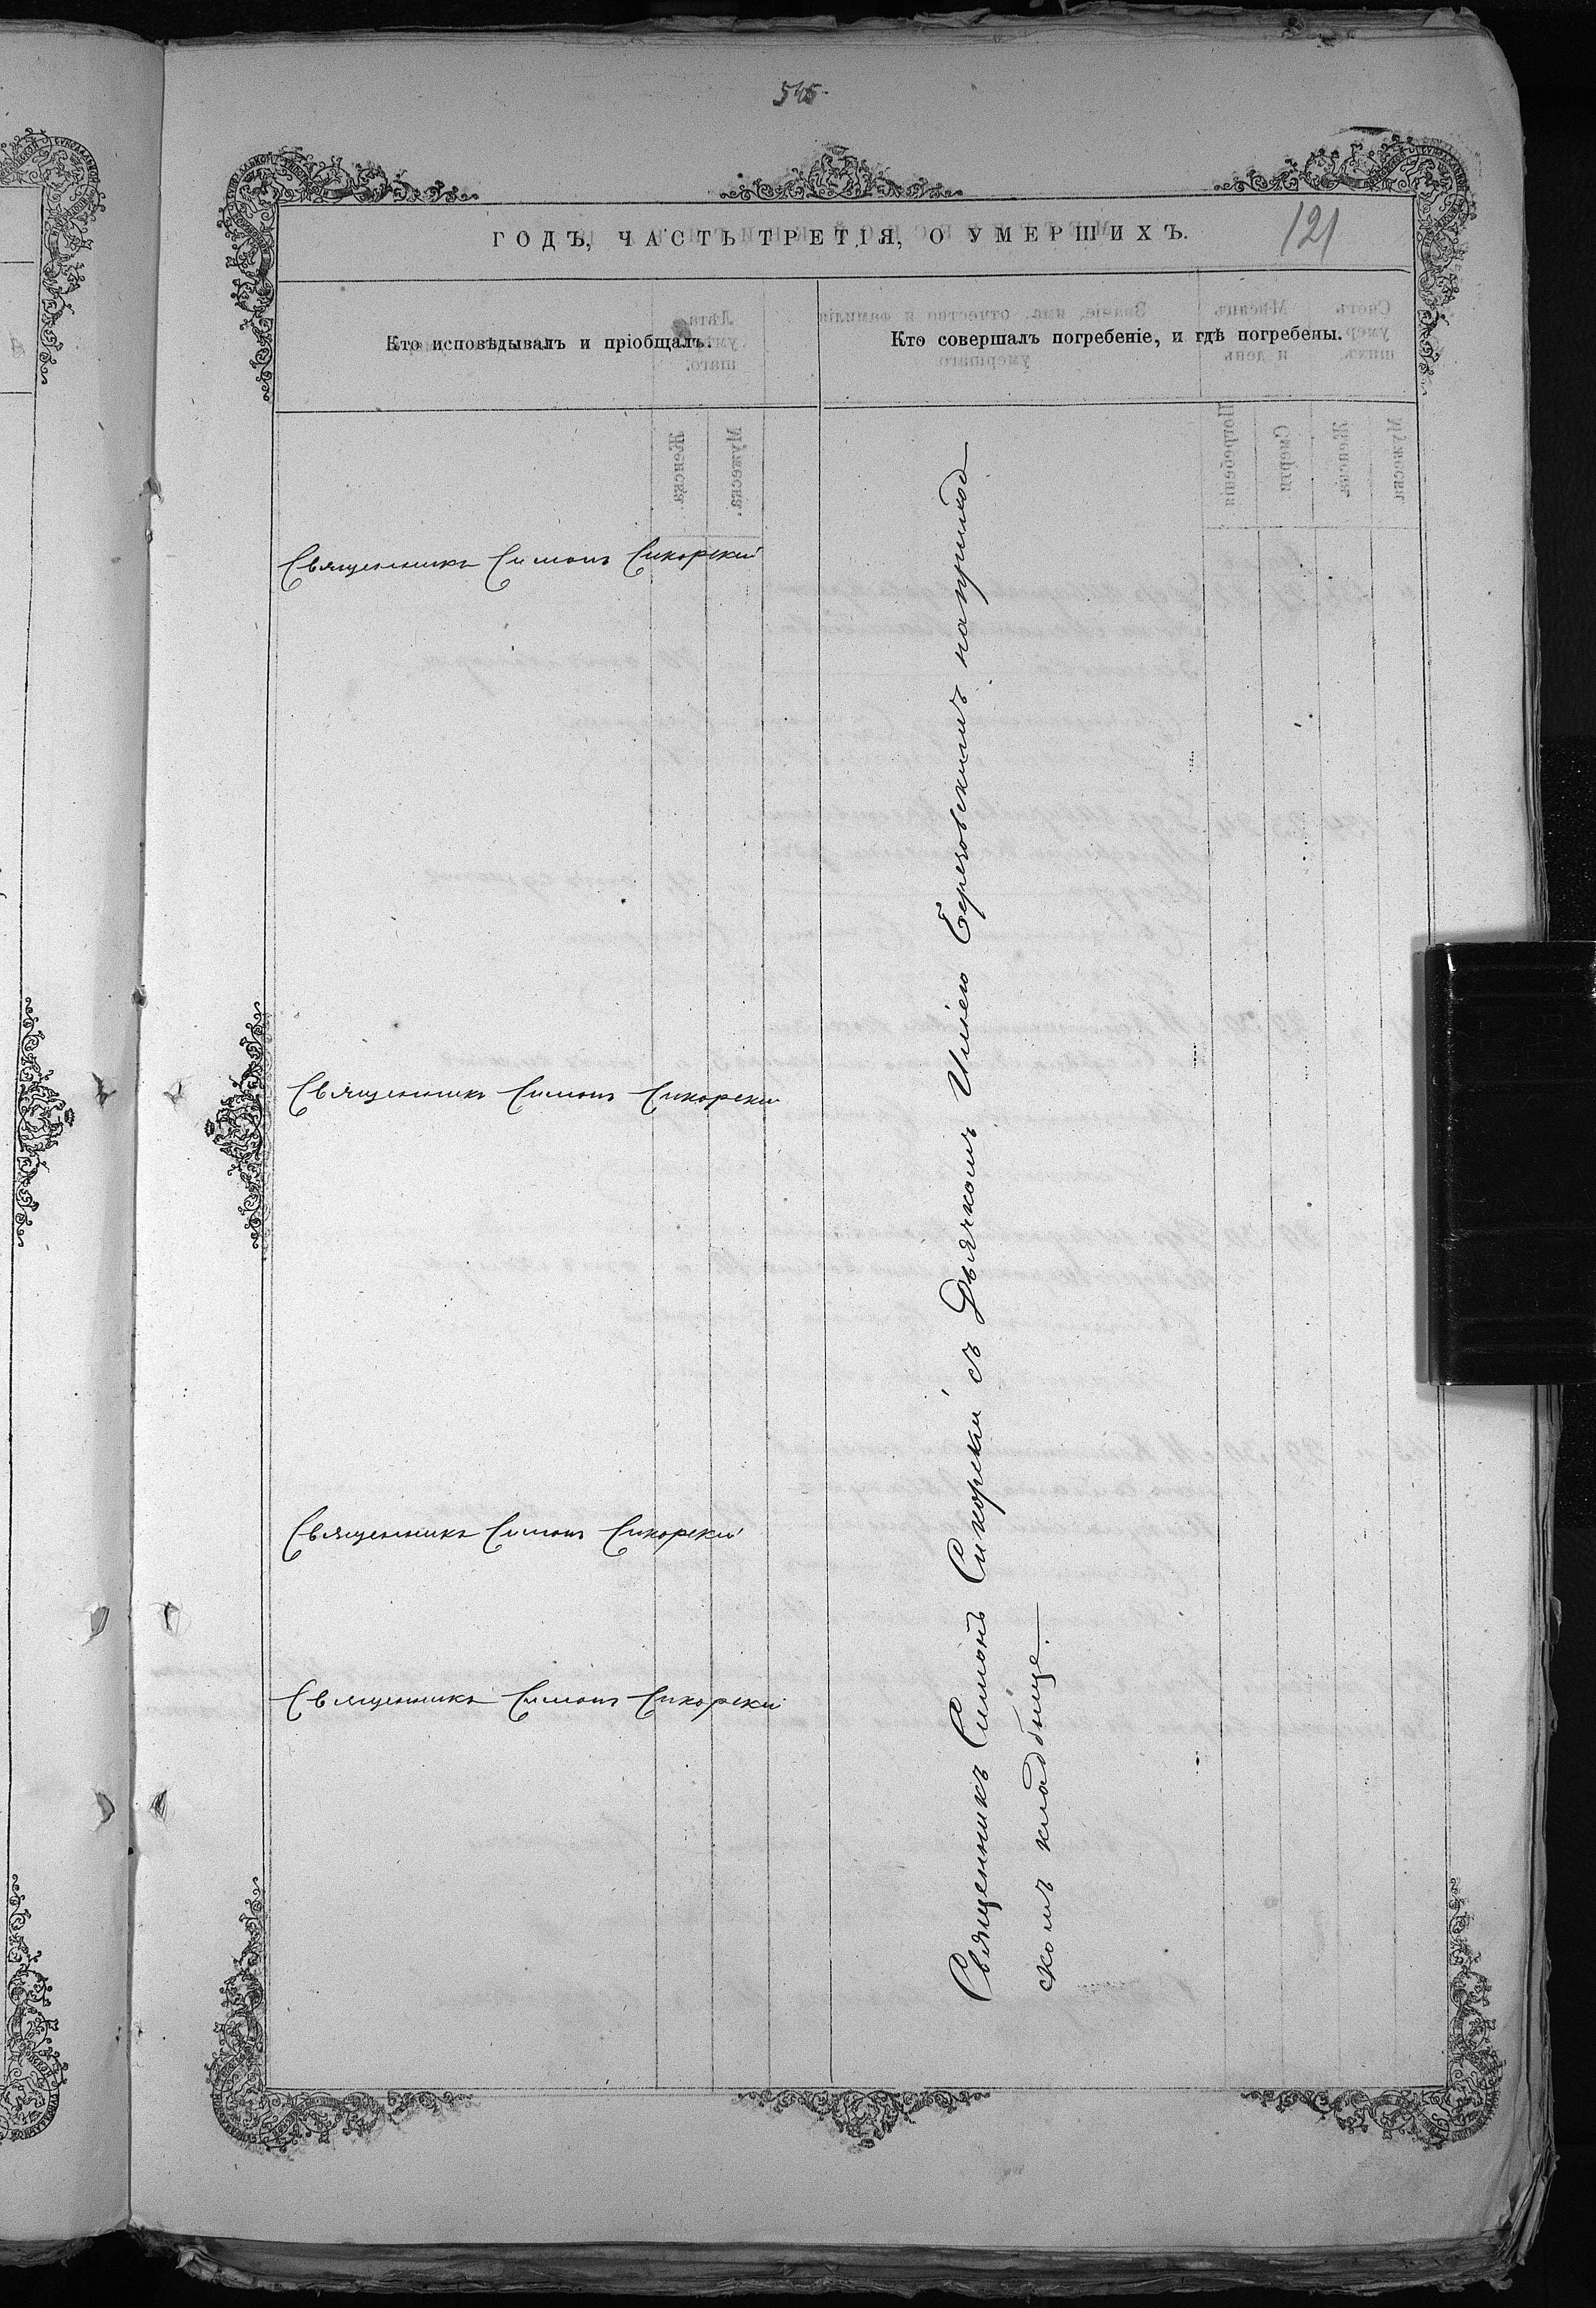 545
ГОДЪ, ЧАСТЬ ТРЕТІЯ, О УМЕРШИХЪ.
121
Кто исповѣдывалъ и пріобщалъ.
Кто совершалъ погребеніе, и гдѣ погребены.
Священникъ Симонъ Сикорскій
Священникъ Симонъ Сикорскій
Священникъ Симонъ Сикорскій
Священникъ Симонъ Сикорскій
Священникъ Симонъ Сикорскій съ Дьячкомъ Иліею Березовскимъ на приход-
скомъ кладбищѣ.